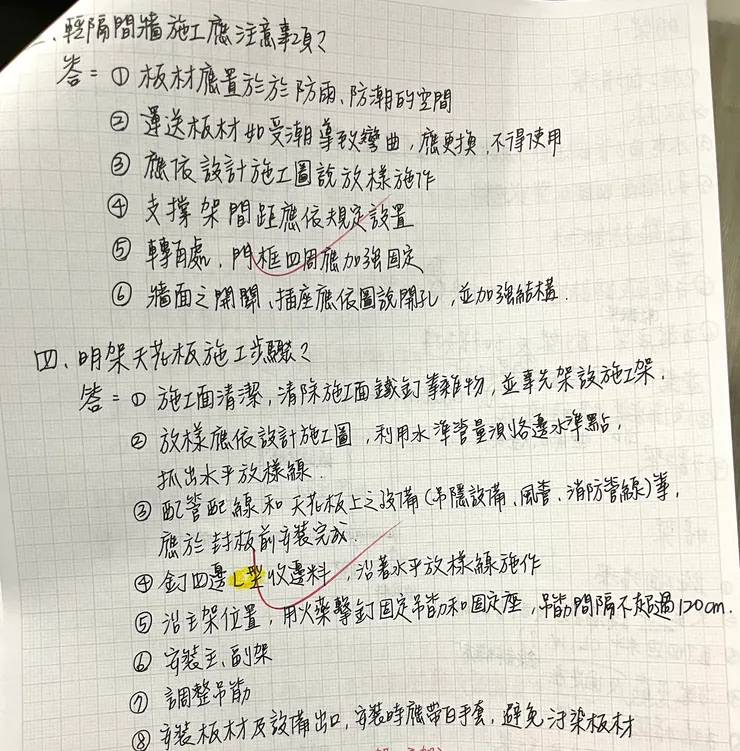 、輕隔間牆施工應注意事項?
答=① 板材應置於於防雨、防潮的空間
② 運送板材如受潮導致彎曲,應更換,不得使用
③ 應依設計施工圖說放樣施作
④ 支撐架間距應依規定設置
⑤ 轉角處、門框四周應加強固定
⑥ 牆面之開關、插座應依圖說開孔,並加強結構.
四、明架天花板施工步驟?
答=① 施工面清潔,清除施工面鐵釘等雜物,並事先架設施工架.
② 放樣應依設計施工圖,利用水準管量測各邊水準點,
抓出水平放樣線.
③ 配管配線和天花板上之設備(吊隱設備、風管、消防管線)等,
應於封板前安裝完成.
④ 釘四邊L型收邊料,沿著水平放樣線施作
⑤ 沿主架位置,用火藥擊釘固定吊筋和固定座,吊筋間隔不超過120cm.
⑥ 安裝主、副架
⑦ 調整吊筋
⑧ 安裝板材及設備出口,安裝時應帶白手套,避免汙染板材